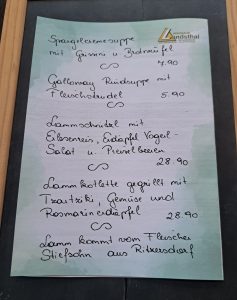 Spargelcremesuppe
mit Grissini u Brotwürfel
4.90
Galloway Rindsuppe mit
Fleischstrudel 5.90
Lammschnitzel mit
Erdäpfel Vogel-
Salat u. Preiselbeeren
28.90
Lammkotlette gegrillt mit
Tzatziki, Gemüse und
Rosmarinerdäpfel
28.90
Lamm kommt vom Fleischer
Stiefsohn aus Ritzersdorf